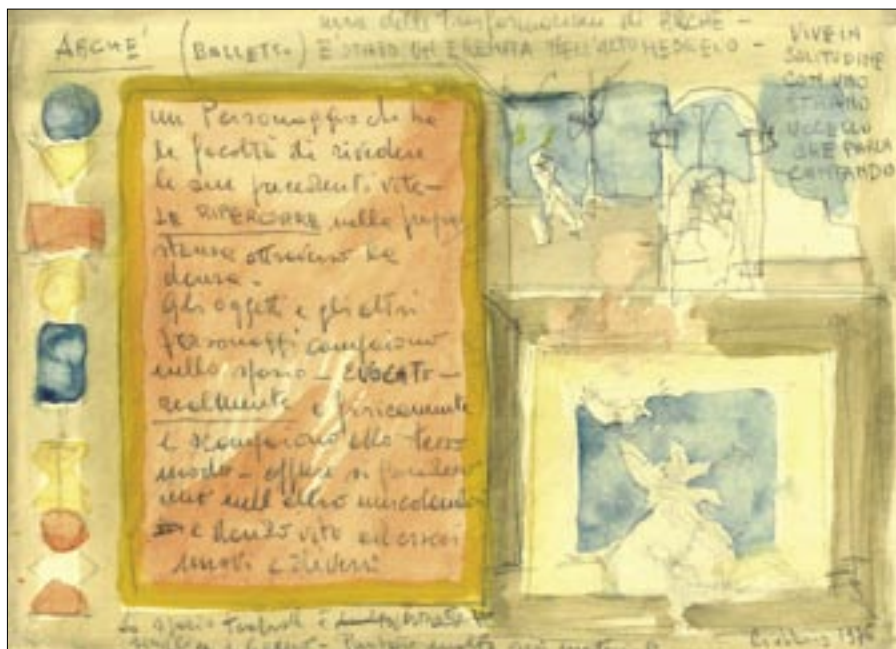 ARCHE' (BALLETTO)
una delle trasformazioni di ARCHE' -
E' STATO UN EREMITA NELL'ALTO MEDIOEVO -
VIVE IN
SOLITUDINE
CON UNO
STRANO
UCCELLO
CHE PARLA
CANTANDO
un Personaggio che ha
la facoltà di rivedere
le sue precedenti vite -
LE RIPERCORRE nella propria
stanza attraverso la
danza.
gli oggetti e gli altri
personaggi compaiono
nello spazio - EVOCATO -
realmente e fisicamente
e scompaiono allo stesso
modo - oppure si fondono
uno nell'altro mescolandosi
e dando vita ad esseri
nuovi e diversi
Lo spazio teatrale è
1976